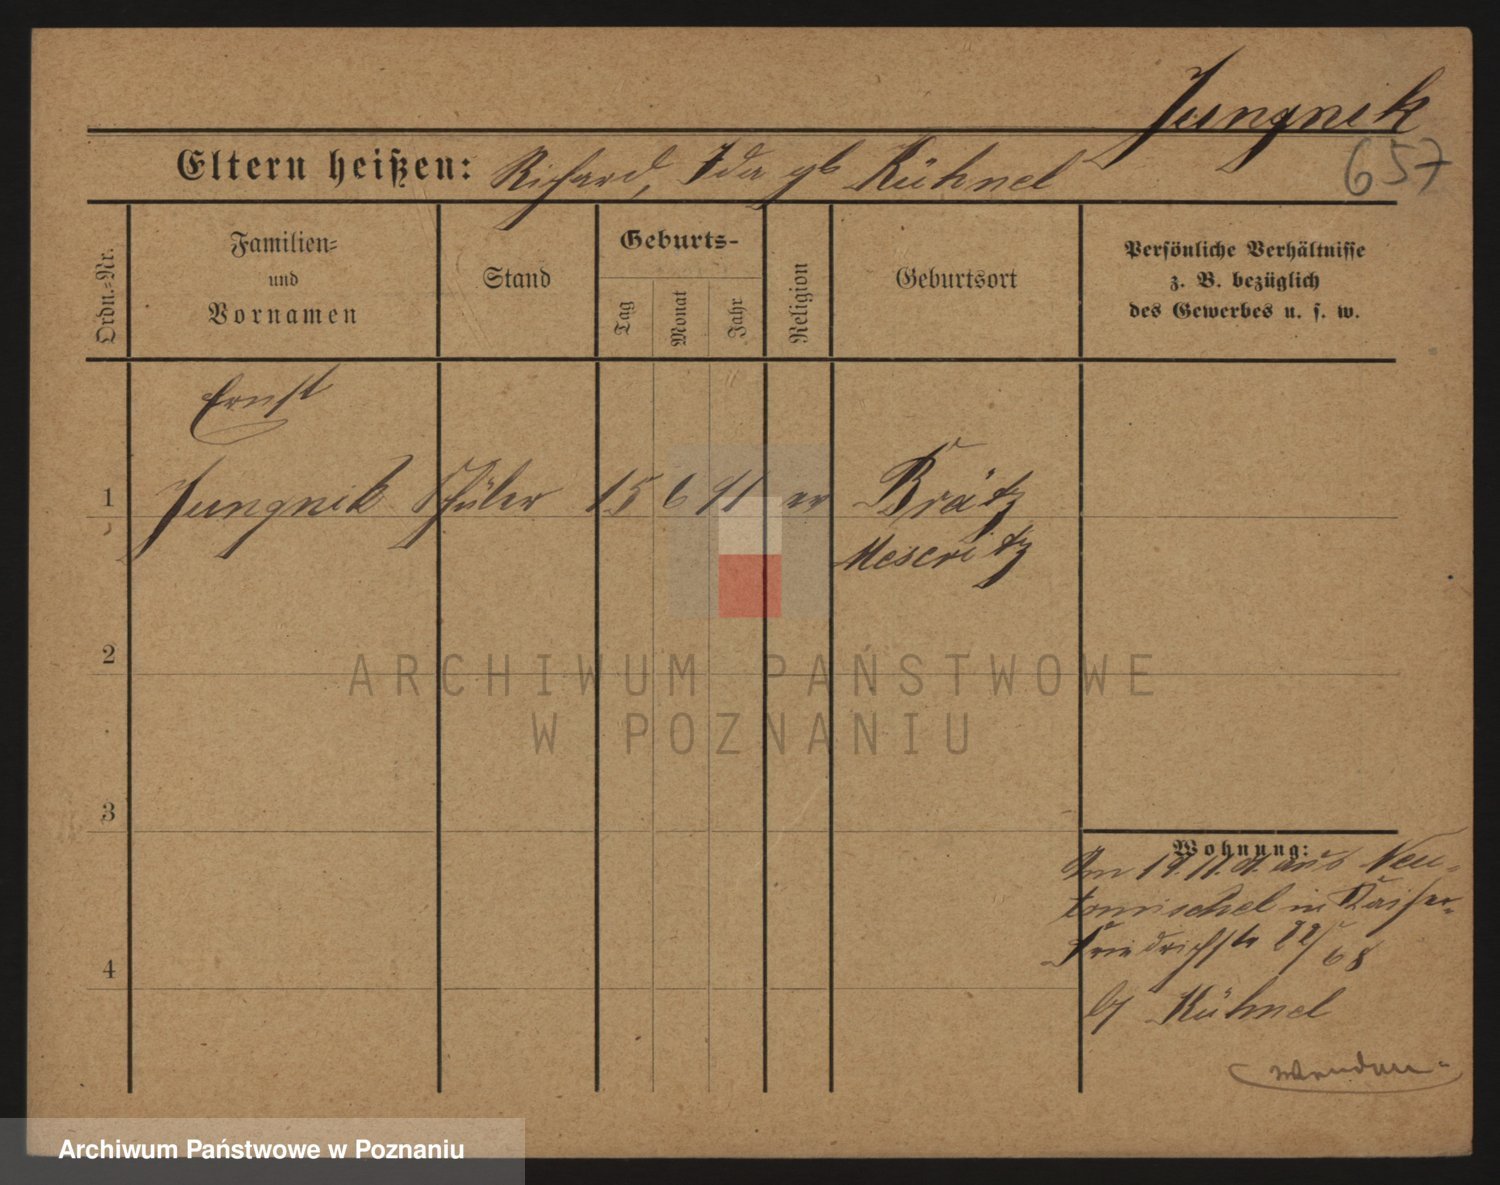 Jungnik
657
Eltern heißen: Richard, Ida gb Kühnel
Ordn.-Nr.
Familien-
und
Vornamen
Stand
Geburts-
Tag
Monat
Jahr
Religion
Geburtsort
Persönliche Verhältnisse
z. B. bezüglich
des Gewerbes u. s. w.
Ernst
1 Jungnik Schüler 15 6 91 ev Brätz
Meseritz
2
ARCHIWUM PAŃSTWOWE
W POZNANIU
3
Wohnung:
Am 19.11.01. aus Neu-
tomischel in Kaiser
Friedrichstr
68
bj Kühnel
4
wenden
Archiwum Państwowe w Poznaniu